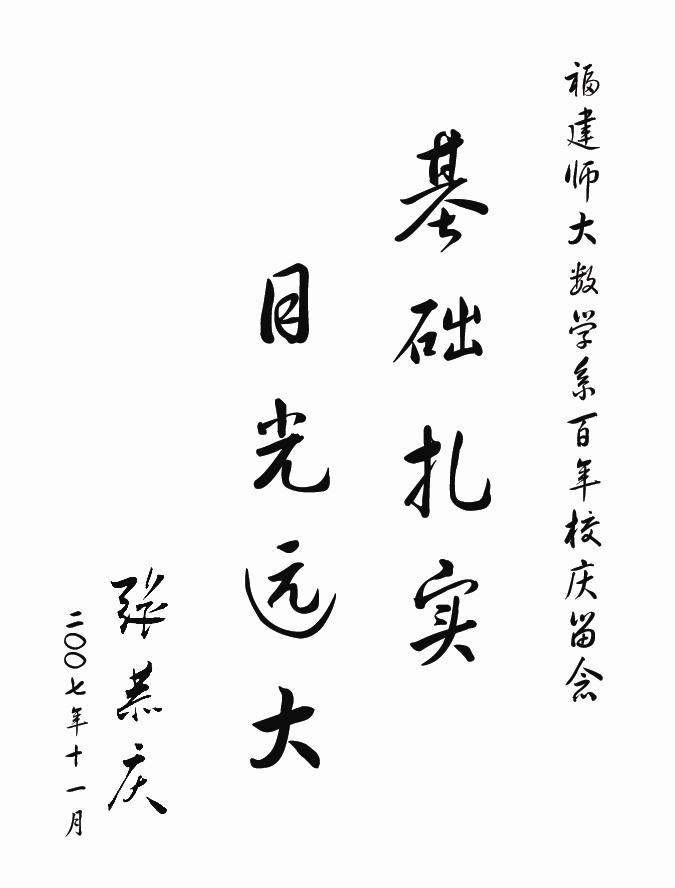 福建师大数学系百年校庆留念
基础扎实
目光远大
张恭庆
二〇〇七年十一月